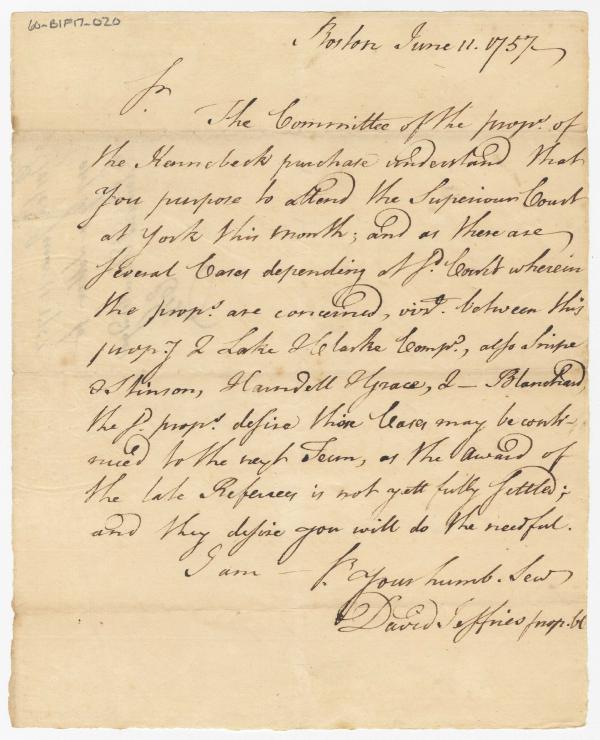 60-B1F17-020
Boston June 11. 1757
Sr.
The Committee of the proprs. of
the Kennebeck purchase understand that
you purpose to attend the Superiour Court
at York this month; and as there are
several Cases depending at sd. Court wherein
the proprs. are concerned, vizt. between this
propy & Lake & Clarke Compy., also Snipe
& Stinson, Harndell & Grace, & — Blanchard,
the sd. proprs. desire those Cases may be conti-
nued to the next Term, as the award of
the late Referees is not yett fully settled;
and they desire you will do the needful.
I am — Sr. Your humb. Serv
David Jeffries prop. Cl